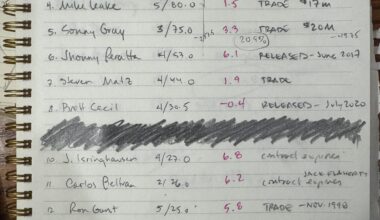 4. Mike Leake 5/80.0 1.5 TRADE $17m
5. Sonny Gray 3/75.0 3.3 TRADE $20M
(20.4%)
6. Jhonny Peralta 4/53.0 6.1 RELEASED - June 2017
7. Steven Matz 4/44.0 1.9 TRADE
8. Brett Cecil 4/30.5 -0.4 RELEASED - July 2020
10. J. Isringhausen 4/27.0 6.8 contract expires
JACK FLAHERTY
11 Carlos Beltran 2/26.0 6.2 contract expires
Ron Gant 5/25.0 5.8 TRADE - NOV. 1998